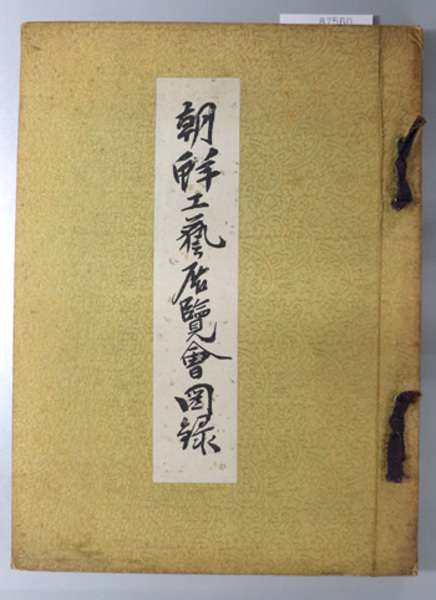 87560
朝鮮工藝展覽會図録